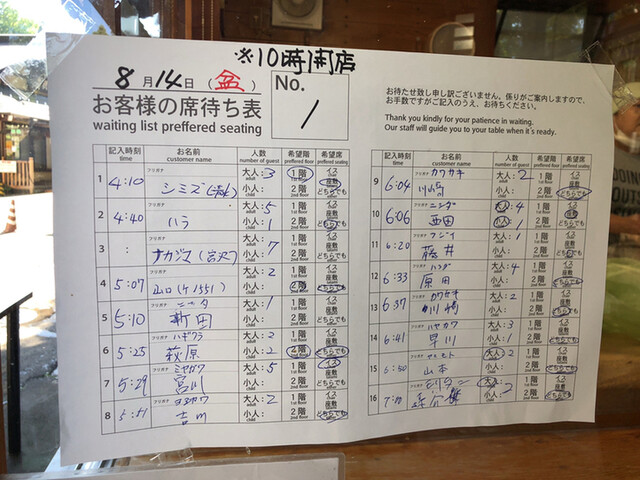 ※10時開店
8月14日(盆)
お客様の席待ち表
waiting list preffered seating
No.
1
お待たせ致し申し訳ございません。係りがご案内しますので、
お手数ですがご記入のうえ、お待ちください。
Thank you kindly for your patience in waiting.
Our staff will guide you to your table when it´s ready.
記入時刻 お名前 人数 希望階 希望席
time customer name number of guest preffered floor prefered seating
1 4:10 フリガナ シミズ 大人:3 小人: 1階 2階 イス 座敷 どちらでも
2 4:40 フリガナ ハラ 大人:5 小人:1 1階 2階 イス 座敷 どちらでも
3 : フリガナ ナカジマ(宮沢) 大人:7 小人: 1階 2階 イス 座敷 どちらでも
4 5:07 フリガナ 山口(ケ1551) 大人:2 小人: 1階 2階 イス 座敷 どちらでも
5 5:10 フリガナ ニッタ 新田 大人:1 小人: 1階 2階 イス 座敷 どちらでも
6 5:25 フリガナ ハギワラ 萩原 大人:2 小人:2 1階 2階 イス 座敷 どちらでも
7 5:29 フリガナ ミヤガワ 宮川 大人:5 小人: 1階 2階 イス 座敷 どちらでも
8 5:51 フリガナ ヨシカワ 吉川 大人:2 小人: 1階 2階 イス 座敷 どちらでも
記入時刻 お名前 人数 希望階 希望席
time customer name number of guest preffered floor prefered seating
9 6:04 フリガナ カワサキ 川崎 大人:2 小人: 1階 2階 イス 座敷 どちらでも
10 6:06 フリガナ 西田 大人:4 小人:1 1階 2階 イス 座敷 どちらでも
11 6:20 フリガナ フジイ 藤井 大人:1 小人: 1階 2階 イス 座敷 どちらでも
12 6:33 フリガナ ハラダ 原田 大人:4 小人: 1階 2階 イス 座敷 どちらでも
13 6:37 フリガナ カワサキ 川崎 大人:2 小人: 1階 2階 イス 座敷 どちらでも
14 6:41 フリガナ ハヤカワ 早川 大人:3 小人:1 1階 2階 イス 座敷 どちらでも
15 6:50 フリガナ ヤマモト 山本 大人:2 小人: 1階 2階 イス 座敷 どちらでも
16 フリガナ 大人: 小人: 1階 2階 イス 座敷 どちらでも